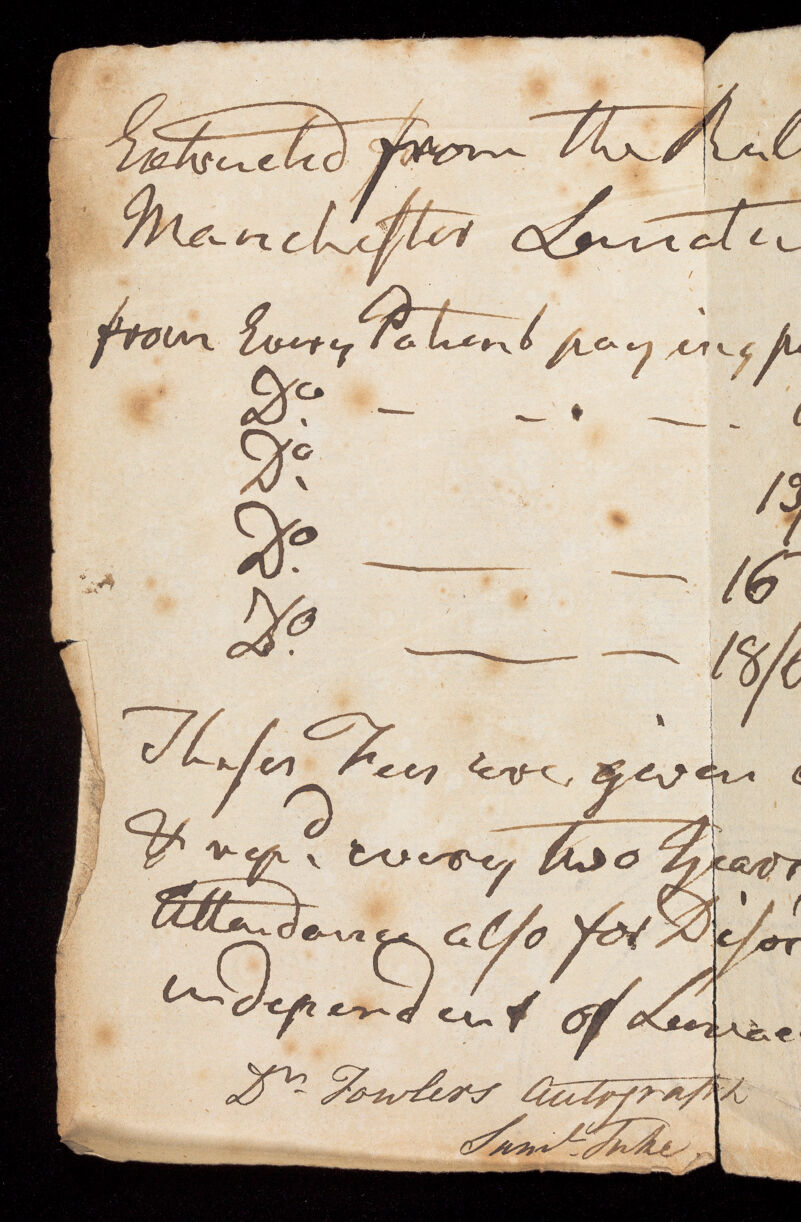 Extracted from the Rul
Manchester Lunati
from Every Patient paying p
Do. - - - -
Do.
13/
Do. — — 16
Do. — — 18/6
These Fees are given
& repd. every two Years
Attendance also for Disor
independent of Lunac
Dr. Fowlers Autograph
Saml. Tuke